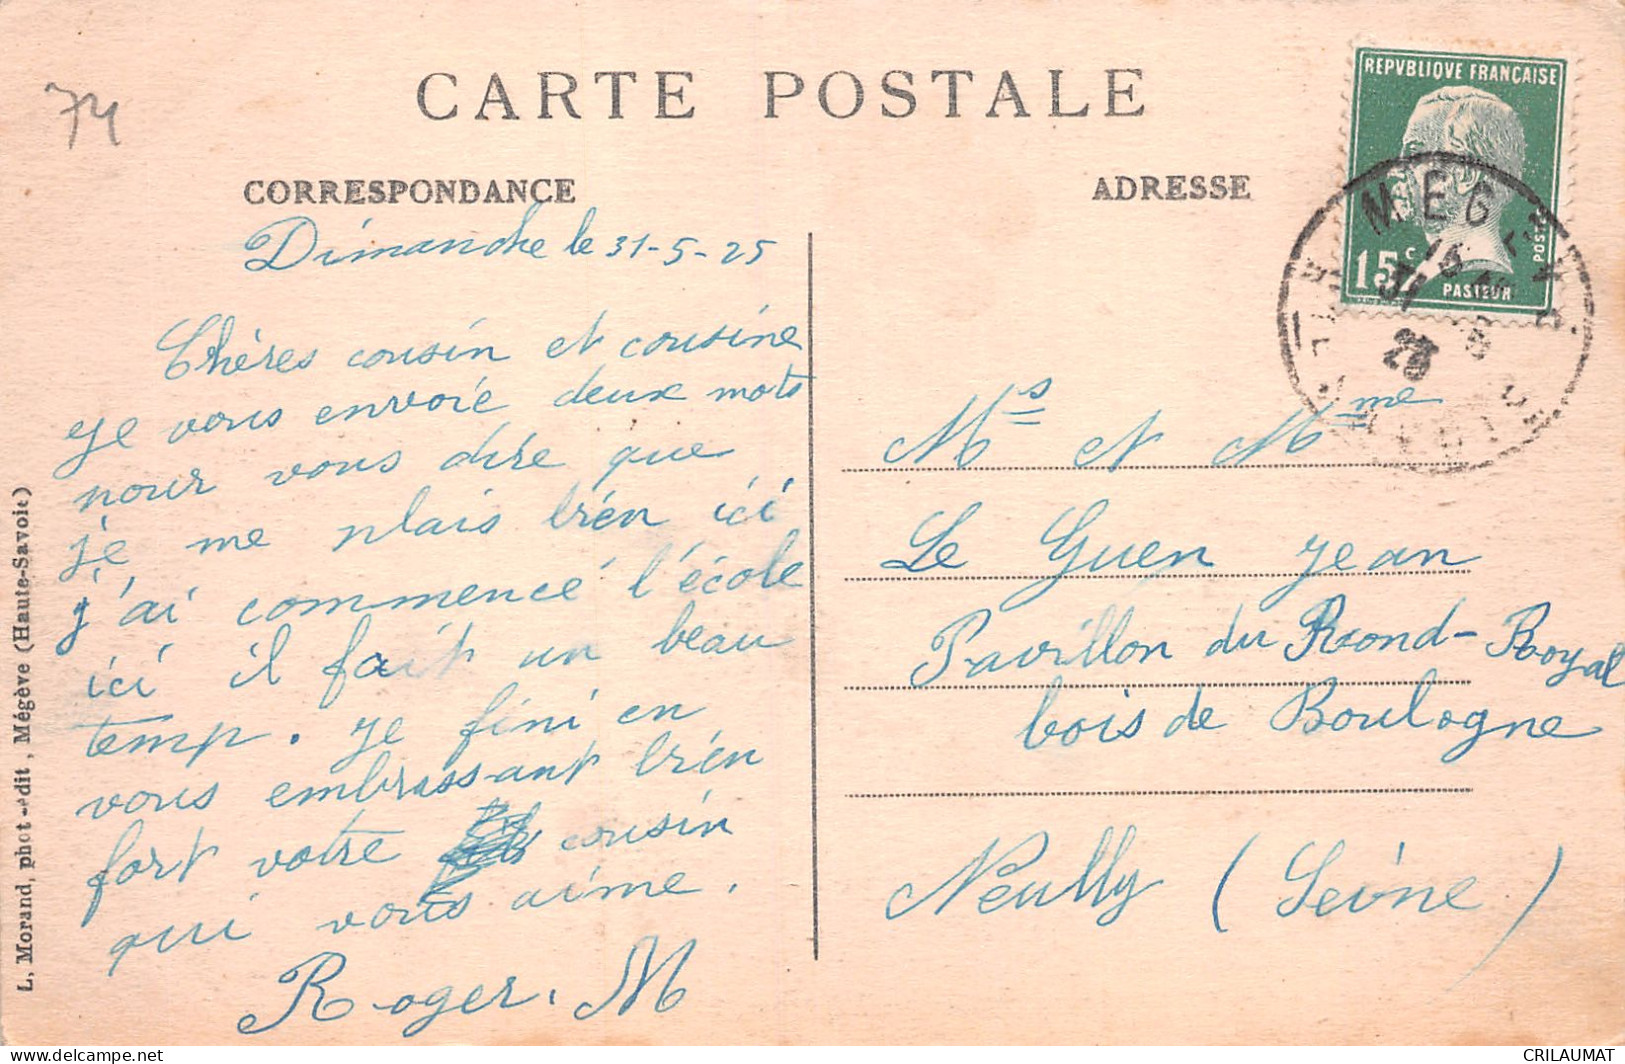 74
CARTE POSTALE
CORRESPONDANCE
ADRESSE
REPVBLIQVE FRANÇAISE
15c
POSTES
PASTEUR
MEG
31
25
Dimanche le 31-5-25
Chères cousin et cousine
Je vous envoie deux mots
pour vous dire que
je me plais bien ici
j'ai commencé l'école
ici il fait un beau
temp. Je fini en
vous embrassant bien
fort votre cousin
qui vous aime.
Roger. M
Ms et Mme
Le Guen Jean
Pavillon du Rond-Royal
bois de Boulogne
Neully (Seine)
L. Morand, phot-édit, Mégève (Haute-Savoie)
delcampe.net
CRILAUMAT